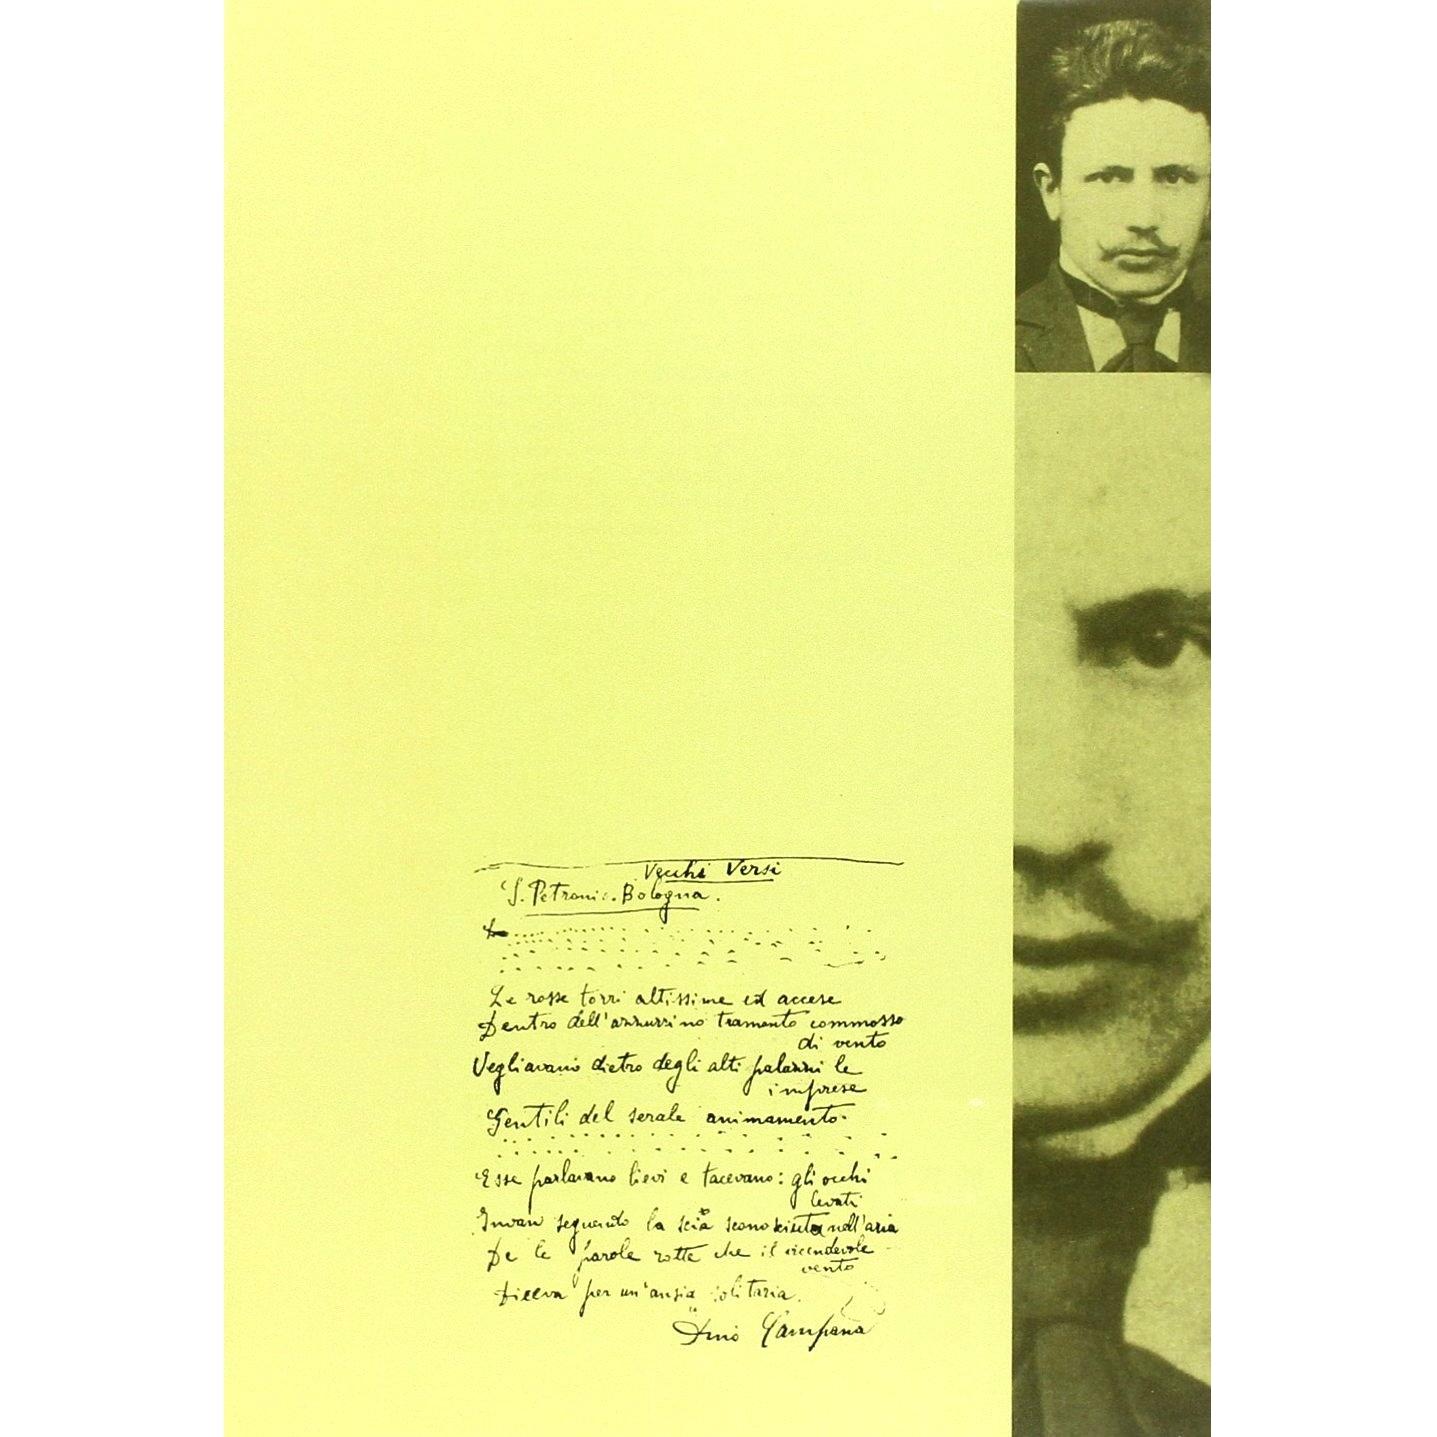 Vecchi Versi
S. Petronio. Bologna.
Le rosse torri altissime ed accese
Dentro dell'azzurrino tramonto commosso
di vento
Vegliavano dietro degli alti palazzi le
imprese
Gentili del serale animamento.
Esse parlavano lievi e tacevano: gli occhi
levati
Invan seguendo la scia sconosciuta nell'aria
De le parole rotte che il vicendevole
vento
Diceva per un'ansia solitaria.
Dino Campana